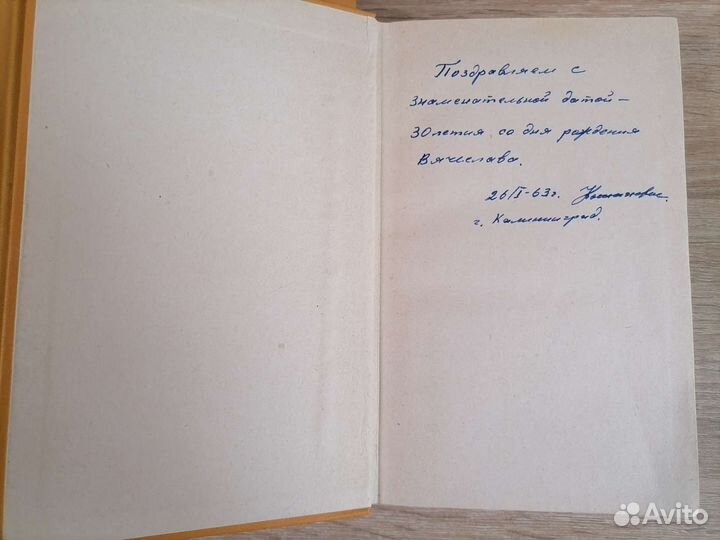 Поздравляем с
знаменательной датой –
30летия со дня рождения
Вячеслава.
26/I-63г.
г. Калининград.
Avito